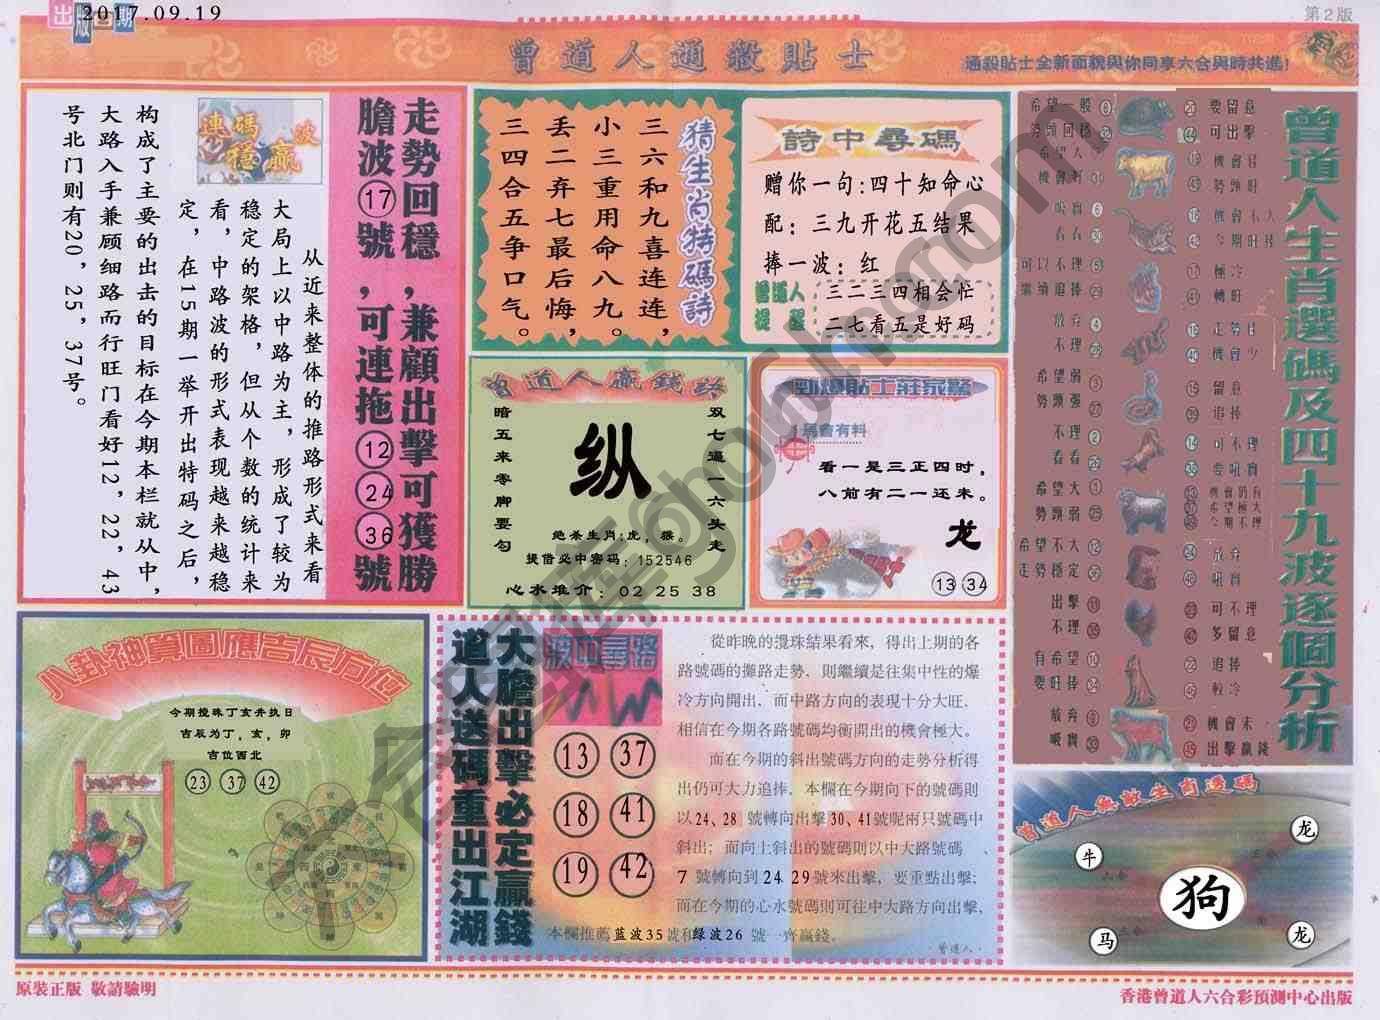 出版日期
2017.09.19
第2版
曾道人通殺貼士
通殺貼士全新面貌與你同享六合與時共進!
走勢回穩,兼顧出擊可獲勝
膽波⑰號,可連拖⑫㉔㊱號
連碼穩贏波
从近来整体的推路形式来看
大局上以中路为主,形成了较为
稳定的架格,但从个数的统计来
看,中路波的形式表现越来越稳
定,在15期一举开出特码之后,
构成了主要的出击的目标在今期本栏就从中,
大路入手兼顾细路而行旺门看好12,22,43
号北门则有20,25,37号。
猜生肖特碼詩
三六和九喜连连,
小三重用命八九。
丢二弃七最后悔,
三四合五争口气。
詩中尋碼
赠你一句:四十知命心
配:三九开花五结果
捧一波:红
曾道人提醒
三二三四相会忙
二七看五是好码
曾道人贏錢路
双七逼一六头走
纵
暗五来零脚要勾
绝杀生肖:虎,猴。
提借必中密码:152546
心水推介:02 25 38
勁爆貼士莊家驚
馬會有料
看一是三正四时,
八前有二一还来。
龙
13 34
曾道人生肖選碼及四十九波逐個分析
要留意
可出擊
勢頭旺
今期旺捧
極冷
轉旺
機會少
留意
追捧
可不理
可不理
多留意
追捧
較冷
出擊贏錢
勢頭回穩
可以不理
繼續追捧
放弃
不理
希望弱
勢頭强
不理
看看
希望大
勢頭弱
希望不大
走勢穩定
出擊
不理
有希望
要旺捧
放弃
八卦神算圖應吉辰方位
今期搅珠丁亥弁执日
吉辰为丁,亥,卯
吉位西北
23 37 42
大膽出擊必定贏錢
道人送碼重出江湖
波中尋路
13 37
18 41
19 42
從昨晚的攪珠結果看來,得出上期的各
路號碼的攤路走勢,則繼續是往集中性的爆
冷方向開出,而中路方向的表現十分大旺,
相信在今期各路號碼均衡開出的機會極大。
而在今期的斜出號碼方向的走勢分析得
出仍可大力追捧,本欄在今期向下的號碼則
以24、28 號轉向出擊30、41號呢兩只號碼中
斜出;而向上斜出的號碼則以中大路號碼
7 號轉向到24 29號來出擊,要重點出擊;
而在今期的心水號碼則可往中大路方向出擊,
本欄推薦蓝波35號和绿波26 號一齊贏錢。
·曾道人·
曾道人無敵生肖選碼
龙
牛
狗
马
龙
原裝正版 敬請驗明
香港曾道人六合彩預測中心出版